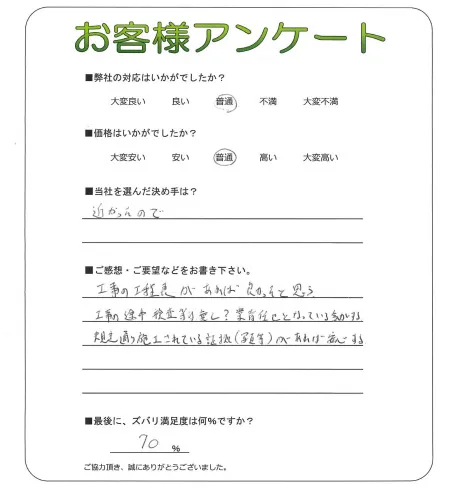 お客様アンケート
■弊社の対応はいかがでしたか？
大変良い 良い 普通 不満 大変不満
■価格はいかがでしたか？
大変安い 安い 普通 高い 大変高い
■当社を選んだ決め手は？
近かったので
■ご感想・ご要望などをお書き下さい。
工事の工程表があれば良かったと思う
工事の途中検査等は無し？業者任せとなっている気がする
規定通り施工されている証拠(写真等)があれば安心する
■最後に、ズバリ満足度は何％ですか？
70 %
ご協力頂き、誠にありがとうございました。